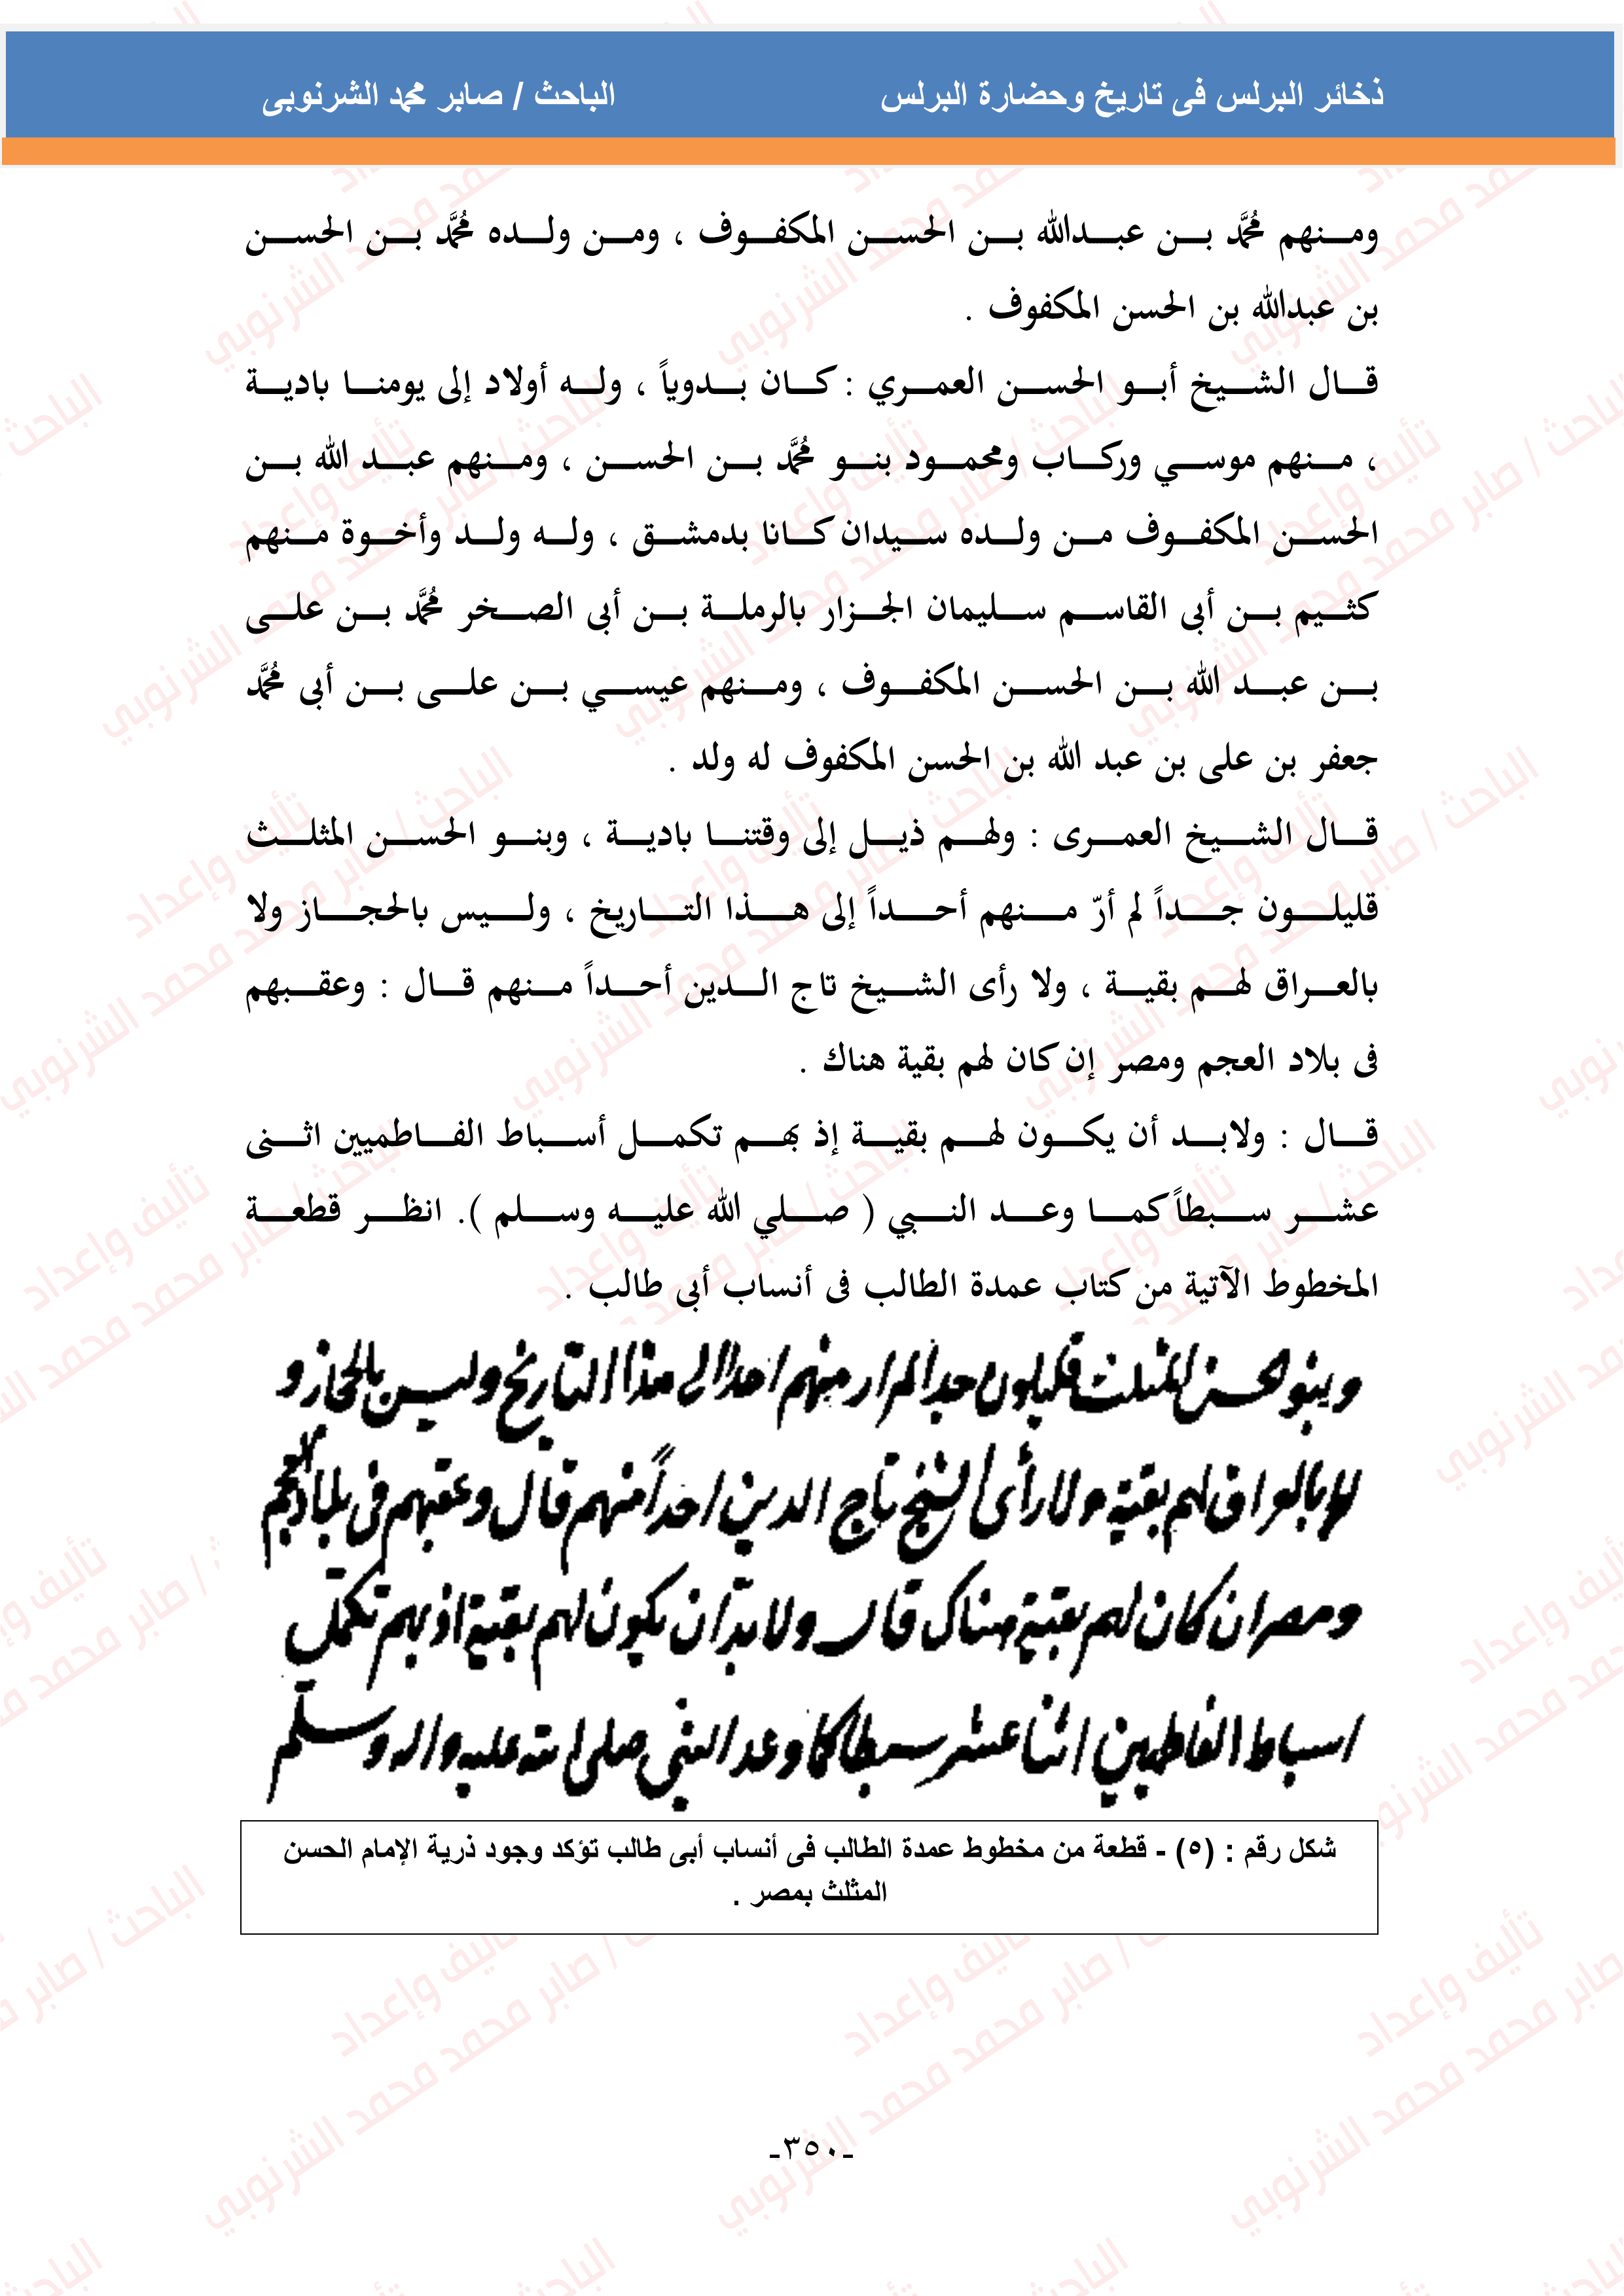 ذخائر البرلس فى تاريخ وحضارة البرلس الباحث / صابر محمد الشرنوبى
ومنهم مُحمَّد بن عبدالله بن الحسن المكفوف ، ومن ولده مُحمَّد بن الحسن
بن عبدالله بن الحسن المكفوف .
قال الشيخ أبو الحسن العمري : كان بدوياً ، وله أولاد إلى يومنا بادية
، منهم موسي وركاب ومحمود بنو مُحمَّد بن الحسن ، ومنهم عبد الله بن
الحسن المكفوف من ولده سيدان كانا بدمشق ، وله ولد وأخوة منهم
كثيم بن أبى القاسم سليمان الجزار بالرملة بن أبى الصخر مُحمَّد بن على
بن عبد الله بن الحسن المكفوف ، ومنهم عيسي بن على بن أبى مُحمَّد
جعفر بن على بن عبد الله بن الحسن المكفوف له ولد .
قال الشيخ العمرى : ولهم ذيل إلى وقتنا بادية ، وبنو الحسن المثلث
قليلون جداً لم أرّ منهم أحداً إلى هذا التاريخ ، وليس بالحجاز ولا
بالعراق لهم بقية ، ولا رأى الشيخ تاج الدين أحداً منهم قال : وعقبهم
فى بلاد العجم ومصر إن كان لهم بقية هناك .
قال : ولابد أن يكون لهم بقية إذ بهم تكمل أسباط الفاطميين اثنى
عشر سبطاً كما وعد النبي ( صلي الله عليه وسلم ). انظر قطعة
المخطوط الآتية من كتاب عمدة الطالب فى أنساب أبى طالب .
وبنو الحسن المثلث قليلون جدا لم ار منهم احدا الى هذا التاريخ وليس بالحجاز و
لا بالعراق لهم بقية ولا رأى الشيخ تاج الدين احداً منهم قال وعقبهم فى بلاد العجم
ومصر ان كان لهم بقية هناك قال ولا بد ان يكون لهم بقية اذ بهم تكمل
اسباط الفاطميين اثنا عشر سبطا كما وعد النبى صلى الله عليه واله وسلم
شكل رقم : (٥) - قطعة من مخطوط عمدة الطالب فى أنساب أبى طالب تؤكد وجود ذرية الإمام الحسن
المثلث بمصر .
-٣٥٠-
تأليف وإعداد
الباحث / صابر محمد محمد الشرنوبي